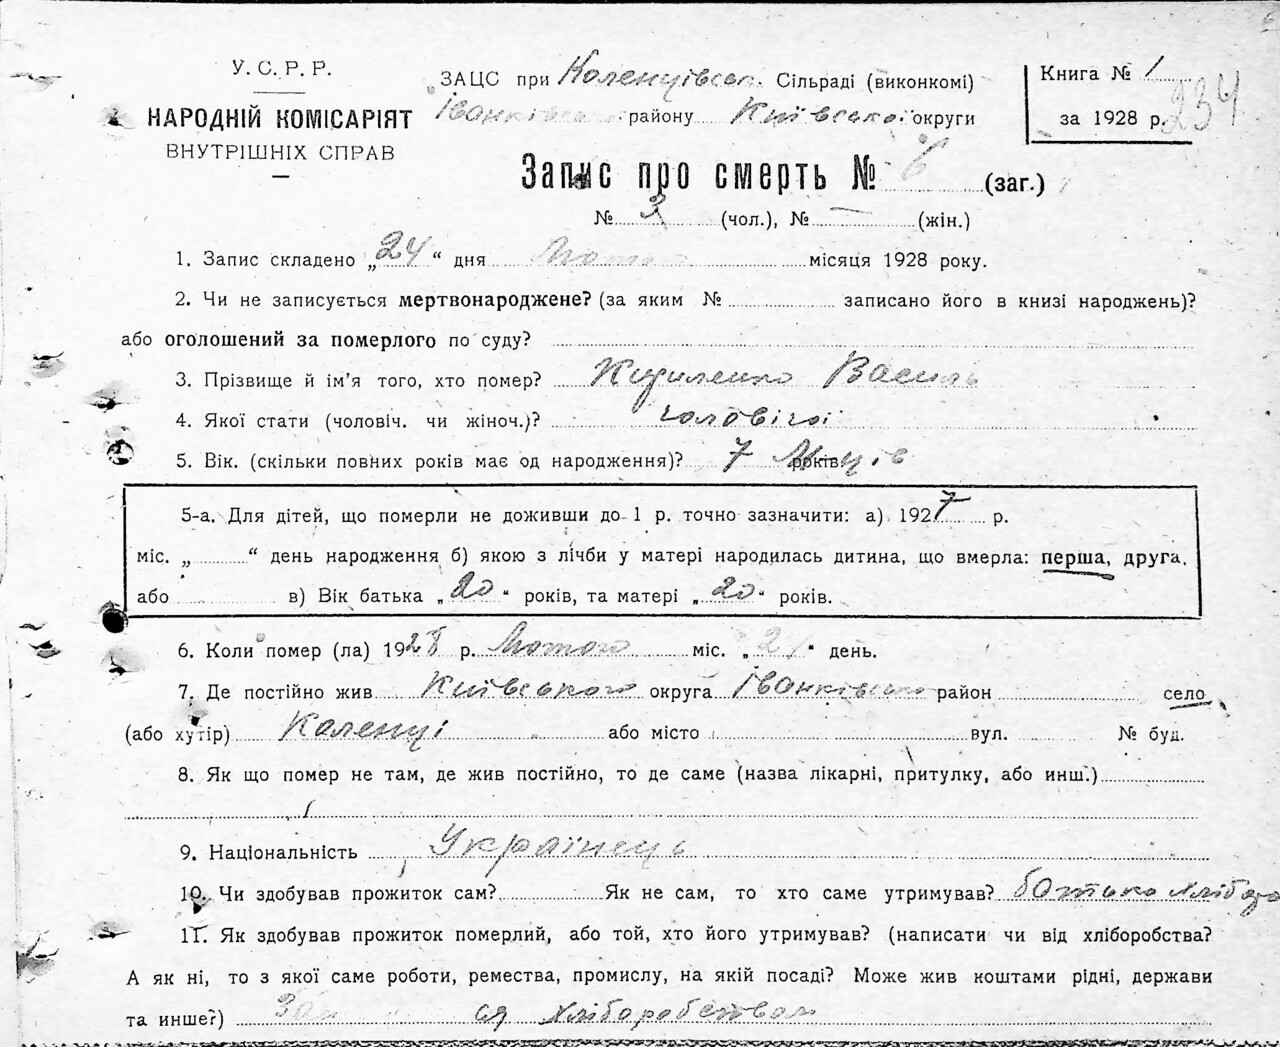 У. С. Р. Р.
НАРОДНІЙ КОМІСАРІЯТ
ВНУТРІШНІХ СПРАВ
ЗАЦС при Коленцівськ. Сільраді (виконкомі)
Іванківсько району Київської округи
Книга № 1
за 1928 р.
234
Запис про смерть № 6 (заг.)
№ 3 (чол.), № — (жін.)
1. Запис складено „24“ дня Лютого місяця 1928 року.
2. Чи не записується мертвонароджене? (за яким № записано його в книзі народжень)?
або оголошений за померлого по суду?
3. Прізвище й ім'я того, хто помер? Кириленко Василь
4. Якої стати (чоловіч. чи жіноч.)? чоловічої
5. Вік. (скільки повних років має од народження)? 7 років Місців
5-а. Для дітей, що померли не доживши до 1 р. точно зазначити: а) 1927 р.
міс. „ “ день народження б) якою з лічби у матері народилась дитина, що вмерла: перша, друга,
або в) Вік батька „20“ років, та матері „20“ років.
6. Коли помер (ла) 1928 р. Лютого міс. „21“ день.
7. Де постійно жив Київського округа Іванківсько район село
(або хутір) Коленці або місто вул. № буд.
8. Як що помер не там, де жив постійно, то де саме (назва лікарні, притулку, або инш.)
9. Національність Українець
10. Чи здобував прожиток сам? Як не сам, то хто саме утримував? батько хлібороб
11. Як здобував прожиток померлий, або той, хто його утримував? (написати чи від хліборобства?
А як ні, то з якої саме роботи, ремества, промислу, на якій посаді? Може жив коштами рідні, держави
та инше?) ся хліборобством